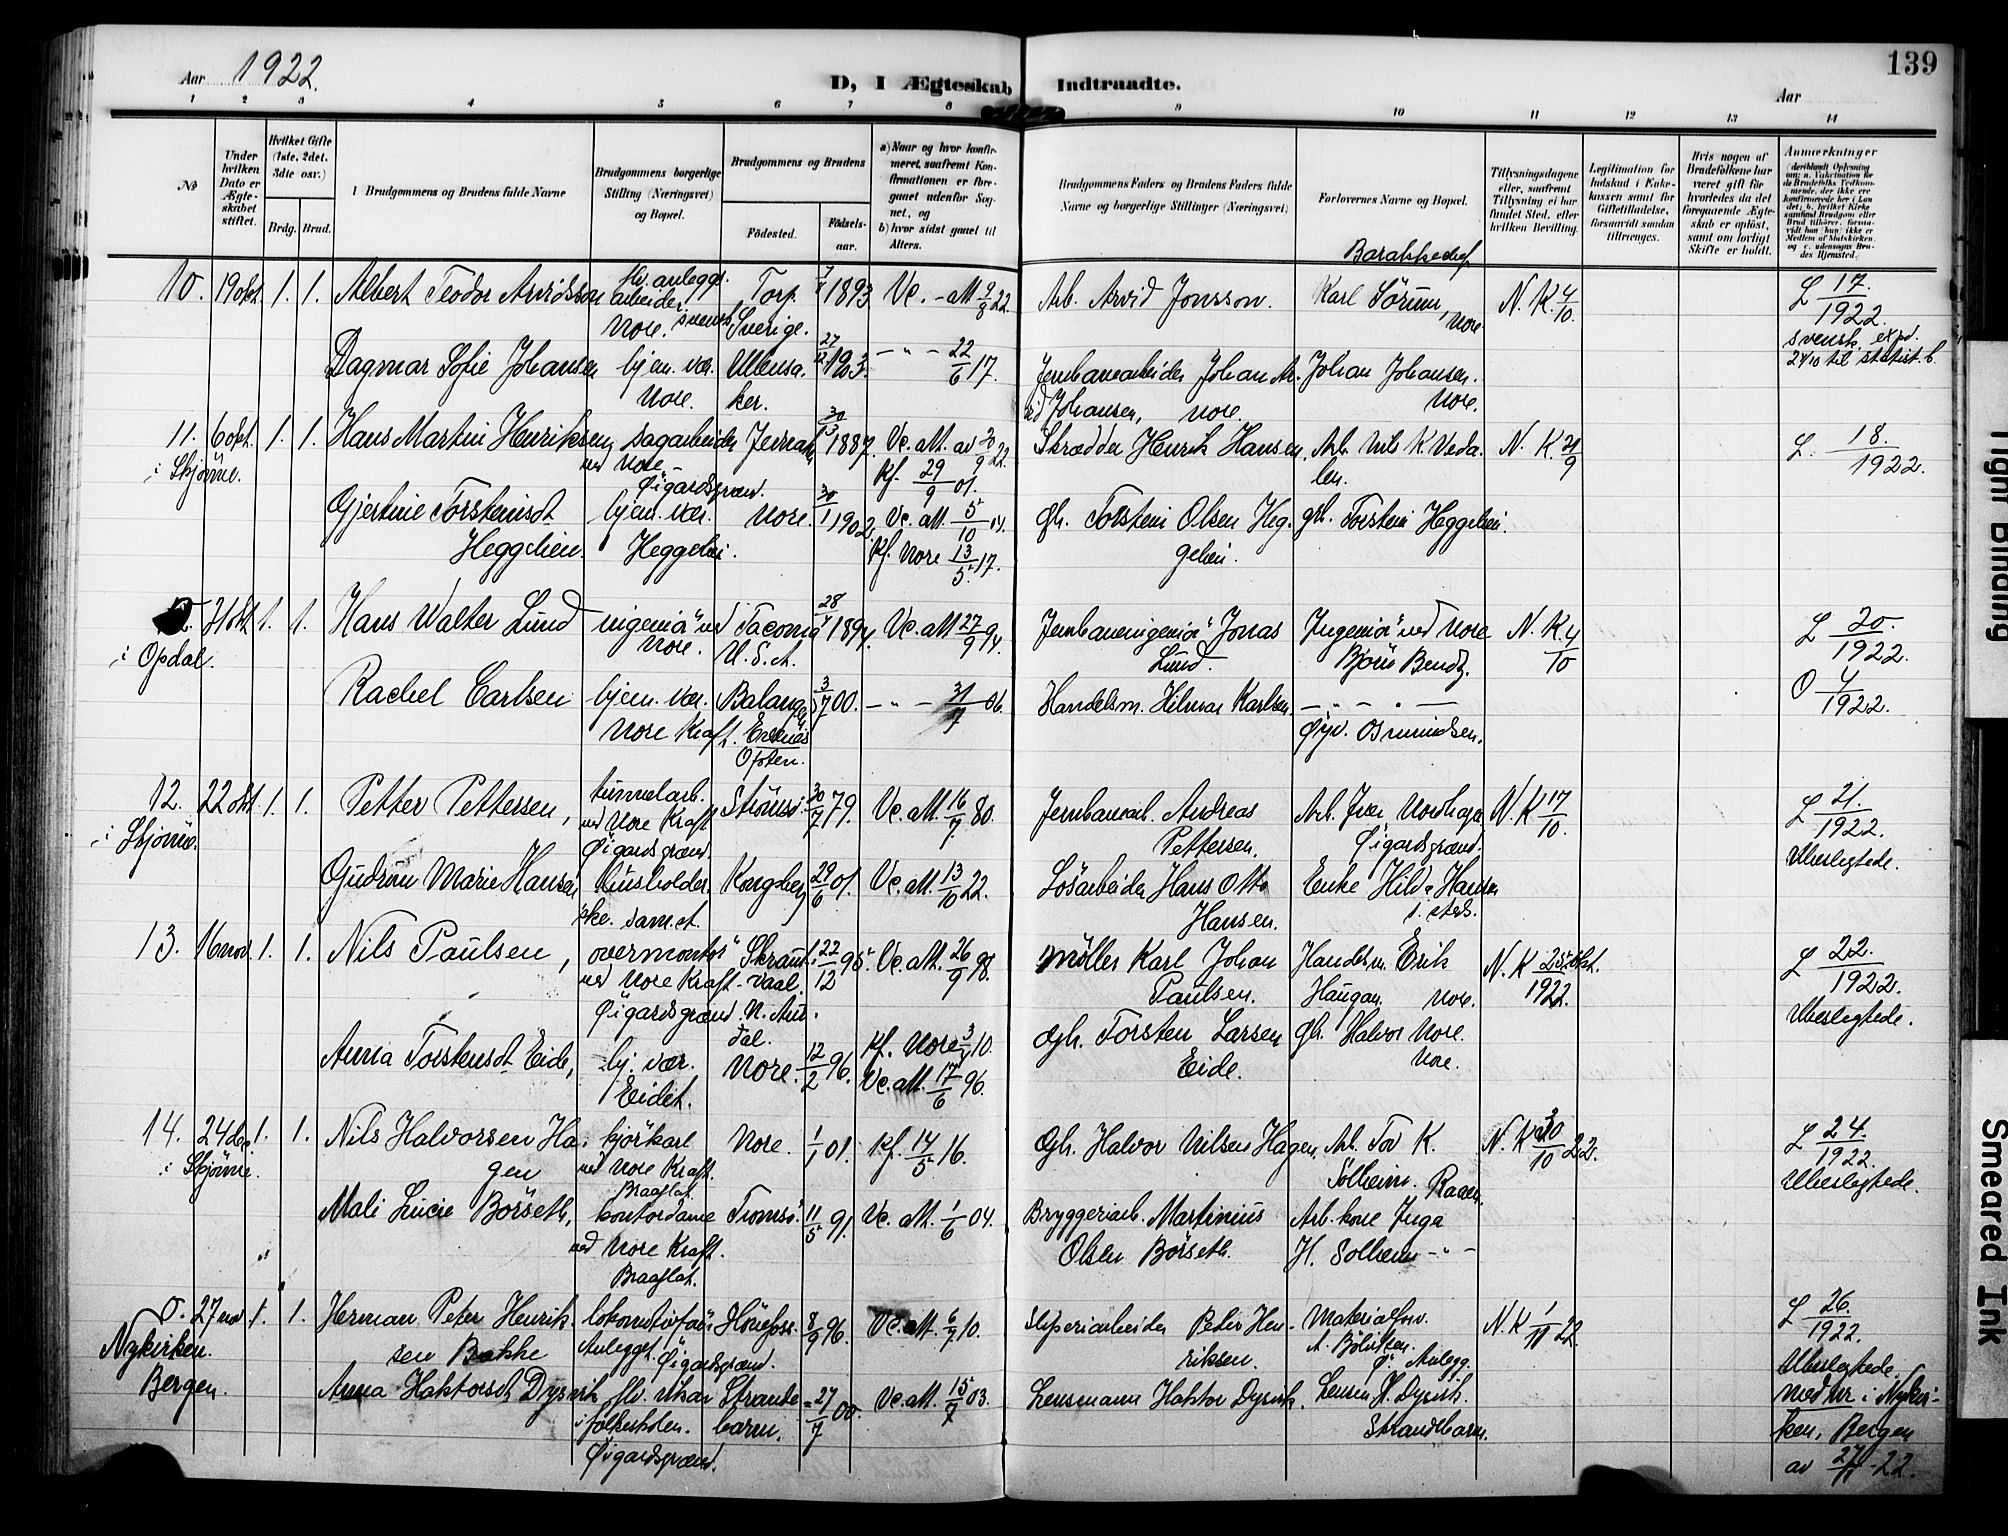 Aar 1922.
D, I Ægteskab Indtraadte.
139
Aar
1 2 3 4 5 6 7 8 9 10 11 12 13 14
№
Under hvilken Dato er Ægteskabet stiftet.
Hvilket Gifte (1ste, 2det, 3die osv.)
Brdg. Brud.
Brudgommens og Brudens fulde Navne
Brudgommens borgerlige Stilling (Næringsvei) og Bopæl.
Brudgommens og Brudens
Fødested. Fødselsaar.
a) Naar og hvor konfirmeret, saafremt Konfirmationen er foregaaet udenfor Sognet, og
b) hvor sidst gaaet til Alters.
Brudgommens Faders og Brudens Faders fulde Navne og borgerlige Stillinger (Næringsvei)
Forlovernes Navne og Bopæl.
Tillysningsdagene eller, saafremt Tillysning ei har fundet Sted, efter hvilken Bevilling.
Legitimation for Indskud i Enkekassen samt for Giftetilladelse, forsaavidt saadan tiltrænges.
Hvis nogen af Brudefolkene har været gift før hvorledes da det foregaaende Ægteskab er opløst, samt om lovligt Skifte er holdt.
Anmærkninger
10. 19 okt. 1. 1. Albert Teodor Arvidsson
arbeider Nore. svensk
Torp. Sverige. 1893
Vc. - att 9/8 22.
Arb. Arvid Jonsson.
Barakkechef Karl Sörum, Nore
N. K. 4/10.
L 17. 1922.
svensk. expd. 24/10 til statist. b.
Dagmar Sofie Johansen
hjem. vær. Nore.
Ullensaker. 27/12 1903.
- " - 22/6 17.
Jernbanearbeider Johan Arvid Johansen, Nore.
Johan Johansen. Nore.
11. 6 okt. 1. 1. Hans Martin Henriksen
i Skjönne.
sagarbeider ved Nore - Øigardsgrænd.
1887.
Vc. att. av 20/9 22.
Kf. 29/9 01.
Skrædder Henrik Hansen.
Arb. Nils K. Vedalen.
N. K. 21/9
L. 18. 1922.
Gjertine Torsteinsdt Heggelien.
hjem. vær. Heggelien.
Nore. 30/1 1902.
Vc. att. 5/10 04.
Kf. Nore 13/5 17.
gh. Torstein Olsen Heggelien.
gh. Torstein Heggelien.
31 okt 1. 1. Hans Walter Lund
i Opdal.
ingeniör ved Nore.
Tacoma U. S. A. 1894.
Vc. att 27/9 94.
Jernbaneingeniör Jonas Lund.
Ingeniör ved Nore Björn Bendz.
N. K. 4/10
L 20. 1922.
O 4/1922.
Rachel Carlsen
hjem. vær. Nore Kraft.
Balangen, Evenæs Ofoten. 3/7 00.
- " - 31/7 06.
Handelsm. Hilmar Karlsen.
- " - " - Øyv. Osmundsen.
12. 22 okt. 1. 1. Petter Pettersen,
i Skjönne.
tunnelarb. ved Nore Kraft. Øigardsgrænd.
Strömsö. 30/7 79.
Vc. att. 16/7 80.
Jernbanearb. Andreas Pettersen.
Arb. Iver Nordhagen Øigardsgrænd.
N. K 17/10.
L 21. 1922.
Ubeslegtede.
Gudrun Marie Hansen,
husholderske. sam.st.
Kongsberg 29/6 01.
Vc. att. 13/10 22.
Lösarbeider Hans Otto Hansen.
Enke Hilda Hansen s. sted.
13. 16 nov. 1. 1. Nils Paulsen,
overmontör ved Nore Kraft. Øigardsgrænd.
Skrautvaal. N. Aurdal. 22/12 95
Vc. att. 26/9 98.
Møller Karl Johan Paulsen.
Handelsm. Erik Haugan. Nore.
N. K 25 okt. 1922.
L 22. 1922.
Ubeslegtede.
Anna Torstensdt Eide,
hj. vær. Eidet.
Nore. 12/2 96.
Kf. Nore 10.
Vc. att. 17/6 96.
Gh. Torsten Larsen Eide.
gh. Halvor Nore. Nore.
14. 24 des. 1. 1. Nils Halvorsen Hagen
i Skjönne.
kjörkarl ved Nore Kraft. Braaflat.
Nore. 1/1 01.
Kf. 14/5 16.
Gh. Halvor Nilsen Hagen.
Arb. Tov K. Solheim. Raaen.
N. K 30/10 22.
L 24. 1922.
Ubeslegtede.
Mali Lucie Börseth,
kontordame ved Nore Kraft. Braaflat.
Tromsö. 11/5 91.
Vc. att. 1/6 04.
Bryggeriarb. Martinius Olsen Börseth.
Arb. kone Inga H. Solheim - " -
0. 27 nov 1. 1. Herman Peter Henriksen Bakke
Nykirken. Bergen.
Anlegget. Øigardsgrænd.
Hönefoss. 8/9 96.
Vc. att. 6/7 10.
Sliperiarbeider Peter Henriksen.
Materialforv. A. Bölvitsen. Ø. Anlegg.
N. K 1/11 22.
L 26. 1922.
Ubeslegtede
Anna Haktorsdt Dysvik
i folkeskolen. Øigardsgrænd.
Strandebarm. 27/7 00.
Vc. att. 15/7 03.
Lensmann Haktor Dysvik.
Lensm. H. Dysvik. Strandebarm.
viedt i Nykirken, Bergen av 27/11 - 22.
Tight Binding
Smeared Ink